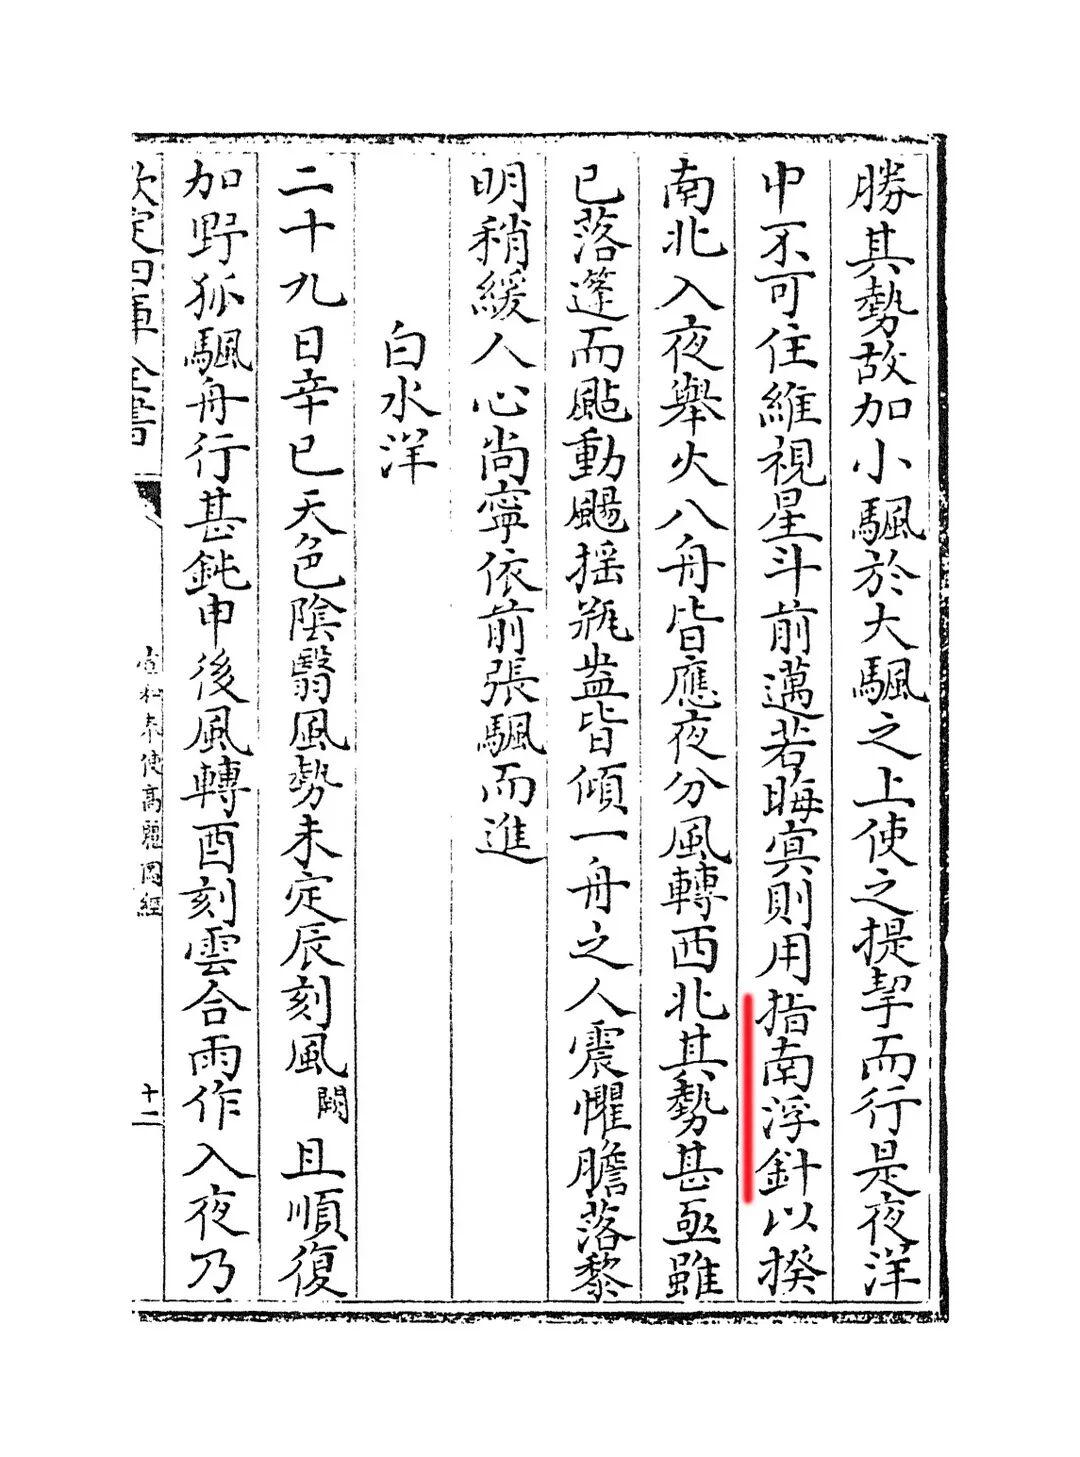 勝其勢故加小颿於大颿之上使之提挈而行是夜洋
中不可住維視星斗前邁若晦冥則用指南浮針以揆
南北入夜舉火八舟皆應夜分風轉西北其勢甚亟雖
已落篷而颭動颺揺瓶盎皆傾一舟之人震懼膽落黎
明稍緩人心尚寧依前張颿而進
白水洋
二十九日辛巳天色陰翳風勢未定辰刻風闕且順復
加野狐颿舟行甚鈍申後風轉酉刻雲合雨作入夜乃
欽定四庫全書
宣和奉使高麗圖經
十二